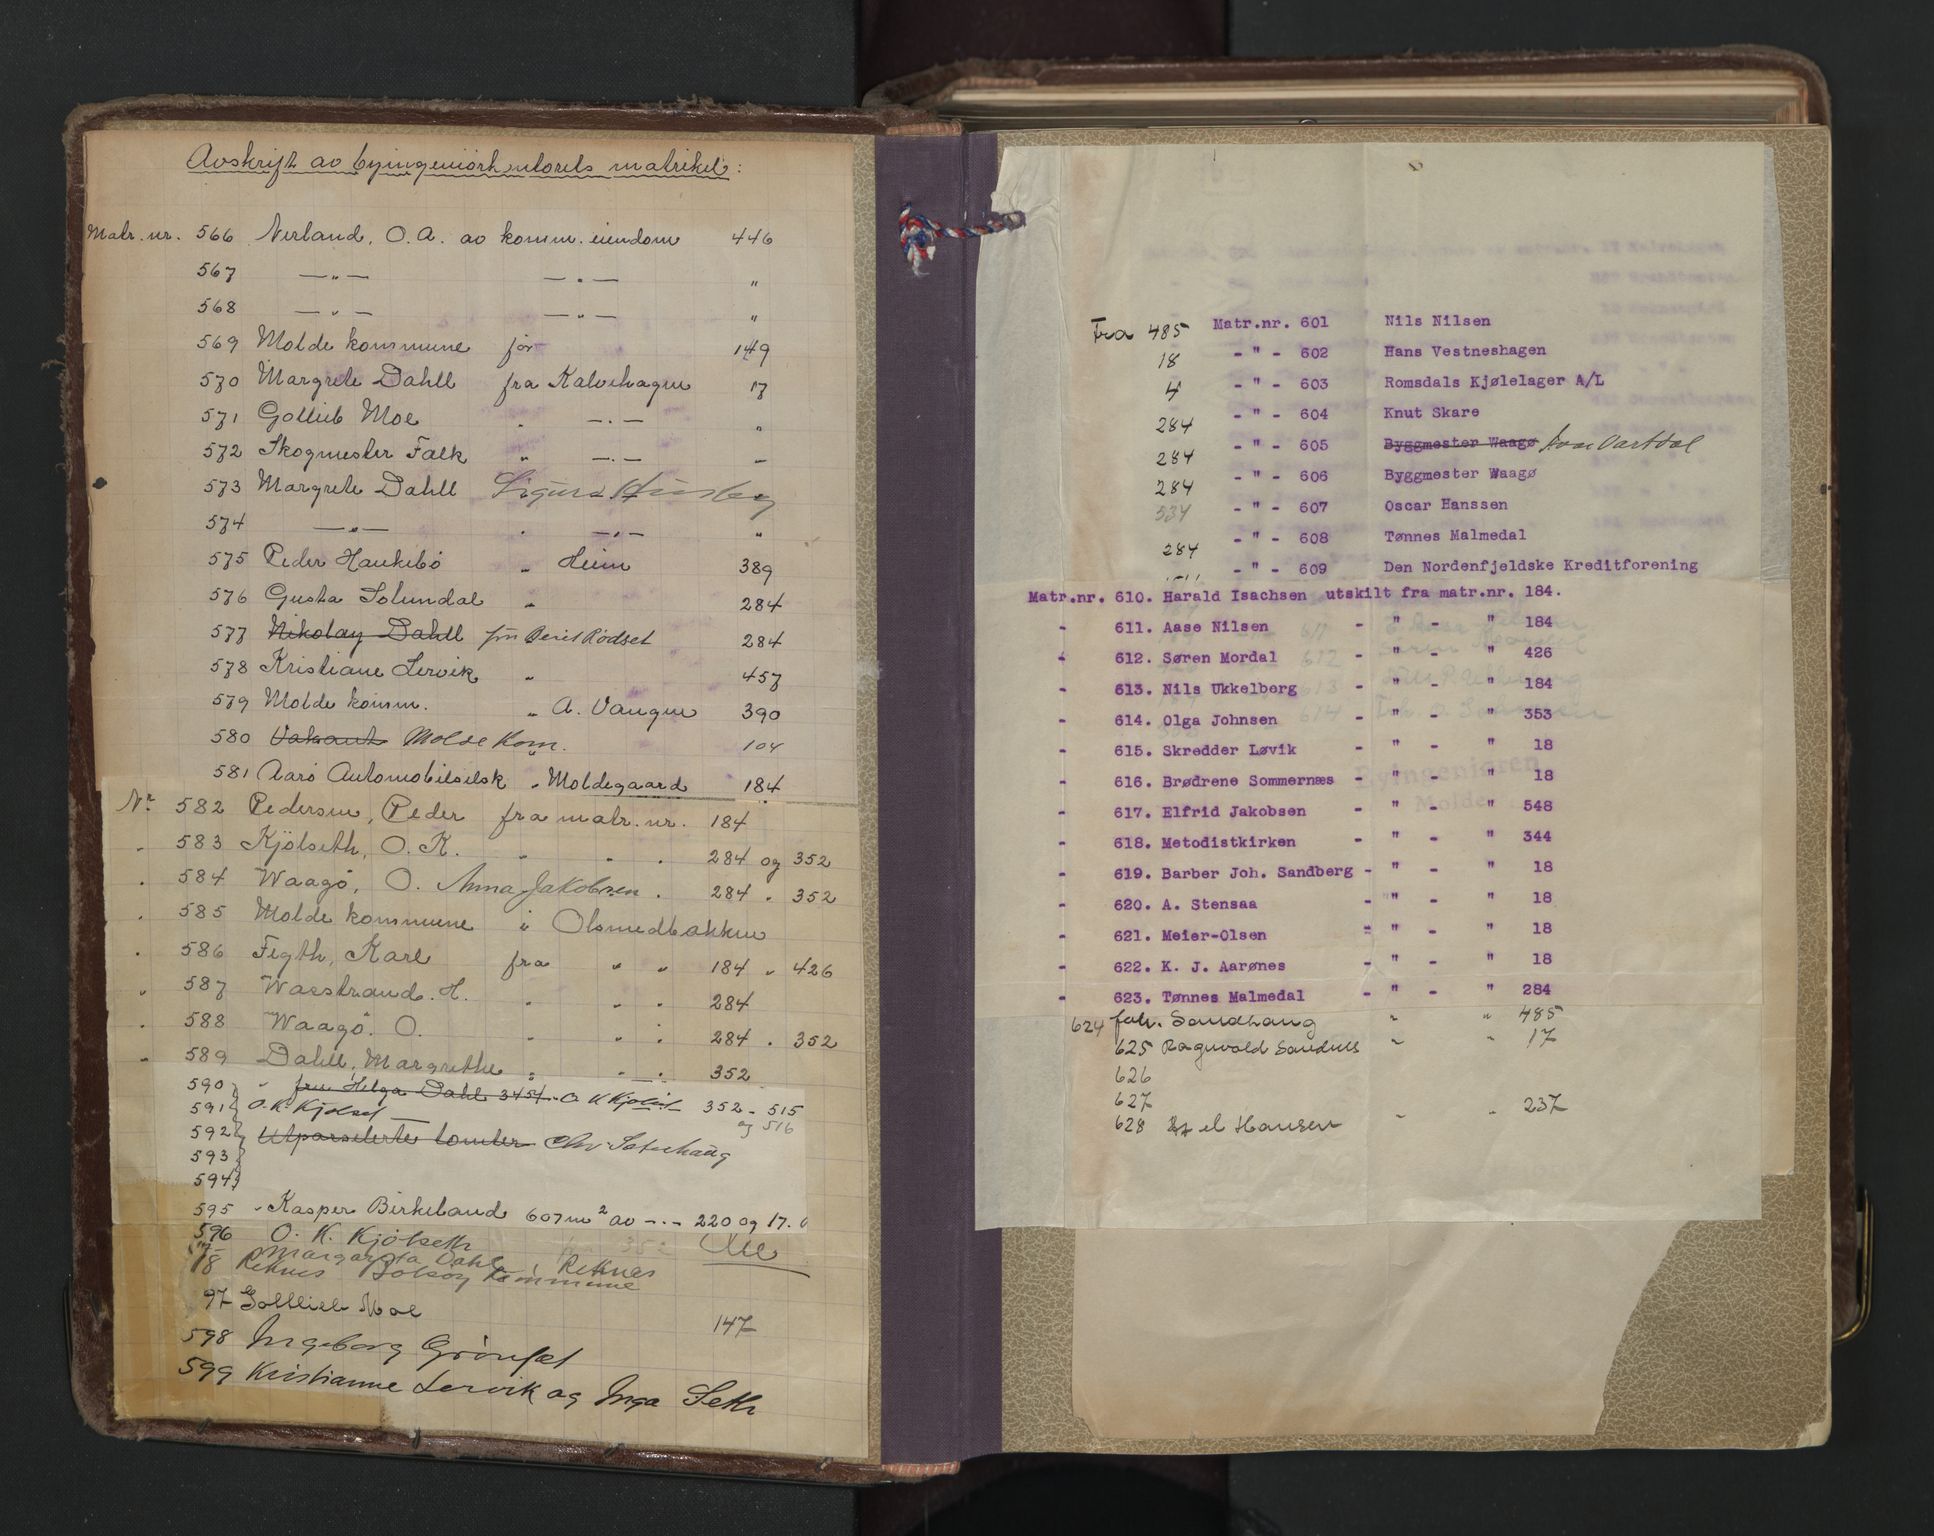 Avskrift av byingeniørkontorets matrikel:
Matr. nr. 566 Nerland, O. A. av komm. eiendom 446
567 —„— —„— „
568 —„— —„— „
569 Molde kommune för 149
570 Margrete Dahll fra Kalvehagen 17
571 Gottlieb Moe „ —„— „
572 Skogmester Falk „ —„— „
573 Margrete Dahll Sigurd
574 —„— „ —„— „
575 Peder Haukebö „ Heim 389
576 Gusta Solundal „ 284
577 Nikolay Dahll fru Berit Rødset 284
578 Kristiane Lervik „ 457
579 Molde komm. „ A. Vangen 390
580 Vakant Molde Kom. 104
581 Aarö Automobilselsk „ Moldegaard 184
Nr 582 Pedersen, Peder fra matr. nr. 184
„ 583 Kjölseth, O. K. „ „ „ 284 og 352
„ 584 Waagö, O. Anna Jakobsen „ 284 „ 352
„ 585 Molde kommune i Olsmedbakken
„ 586 Fegth, Karl fra „ „ 184 „ 426
„ 587 Waestrand. H. „ „ „ 284
„ 588 Waagö. O. „ „ „ 284 „ 352
„ 589 Dahll, Margrethe „ „ „ 352
590 „ fru Helga Dahl 345 O K Kjølset 352 - 515
591 O. K. Kjölset og 516
592 Utparselerte tomter Chr Sæterhaug
593
594
595 „ Kasper Birkeland 607 m2 av -„- 220 og 17.
596 O. K. Kjölseth
Margareta Dahl, Reknes
Reknes Bolsøy Kommune
97 Gottlieb Moe 147
598 Ingeborg Grönset
599 Kristianne Lervik og Inga Seth
Fra 485 Matr.nr. 601 Nils Nilsen
18 - " - 602 Hans Vestneshagen
4 - " - 603 Romsdals Kjølelager A/L
284 - " - 604 Knut Skare
284 - " - 605 Byggmester Waagø Ivar Vartdal
284 - " - 606 Byggmester Waagø
534 - " - 607 Oscar Hanssen
284 - " - 608 Tønnes Malmedal
- " - 609 Den Nordenfjeldske Kreditforening
Matr.nr. 610. Harald Isachsen utskilt fra matr.nr. 184.
- 611. Aase Nilsen - " - " 184
- 612. Søren Mordal - " - " 426
- 613. Nils Ukkelberg - " - " 184
- 614. Olga Johnsen - " - " 353
- 615. Skredder Løvik - " - " 18
- 616. Brødrene Sommernæs - " - " 18
- 617. Elfrid Jakobsen - " - " 548
- 618. Metodistkirken - " - " 344
- 619. Barber Joh. Sandberg - " - " 18
- 620. A. Stensaa - " - " 18
- 621. Meier-Olsen - " - " 18
- 622. K. J. Aarønes - " - " 18
- 623. Tønnes Malmedal - " - " 284
624 Joh. Sandhaug „ „ 485
625 Ragnvald Sandnes „ „ 17
626
627
628 Hansen „ „ 237
Byingeniøren
Molde